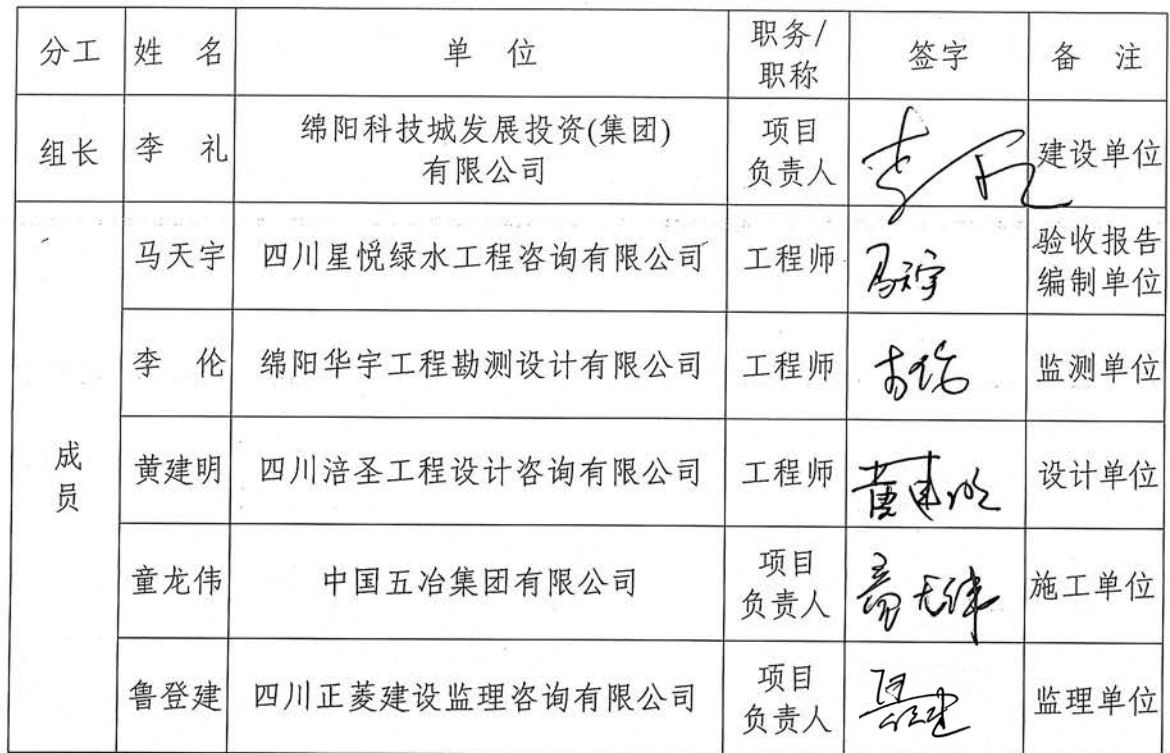 分工 姓 名 单 位 职务/职称 签字 备 注
组长 李 礼 绵阳科技城发展投资(集团)有限公司 项目负责人 李礼 建设单位
成员
马天宇 四川星悦绿水工程咨询有限公司 工程师 马天宇 验收报告编制单位
李 伦 绵阳华宇工程勘测设计有限公司 工程师 李伦 监测单位
黄建明 四川涪圣工程设计咨询有限公司 工程师 黄建明 设计单位
童龙伟 中国五冶集团有限公司 项目负责人 童龙伟 施工单位
鲁登建 四川正菱建设监理咨询有限公司 项目负责人 鲁登建 监理单位